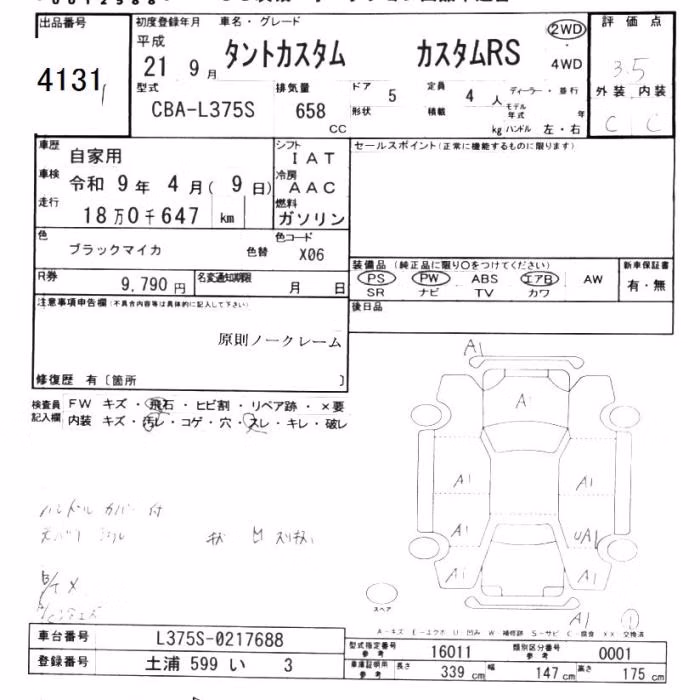 出品番号
4131
初度登録年月
車名・グレード
平成
21 9 月
タントカスタム カスタムRS
2WD
・
4WD
評価点
3.5
外装 内装
C C
型式
CBA-L375S
排気量
658
CC
ドア
5
形状
定員
4 人
積載
kg
ディーラー・並行
モデル年式 年
ハンドル 左・右
車歴
自家用
車検
令和 9 年 4 月( 9 日)
走行
18 万 0 千 647 km
シフト
IAT
冷房
AAC
燃料
ガソリン
セールスポイント(正常に機能するものに限ります)
色
ブラックマイカ
色替
色コード
X06
R券
9,790 円
名変通知期限
月 日
装備品 (純正品に限り○をつけてください)
PS PW ABS エアB AW
SR ナビ TV カワ
新車保証書
有・無
後日品
注意事項申告欄(不具合内容等は具体的に記入して下さい)
原則ノークレーム
修復歴 有〔箇所 〕
検査員記入欄
FW キズ・飛石・ヒビ割・リペア跡・×要
内装 キズ・汚レ・コゲ・穴・スレ・キレ・破レ
ハンドル カバー 付
A1
A
A1
A1
A1
UA1
A1
A1
A1
スペア
1
A-キズ E-エクボ U 凹み W 補修跡 S-サビ C-腐食 XX 交換済
車台番号
L375S-0217688
登録番号
土浦 599 い 3
型式指定番号
参考
16011
類別区分番号
参考
0001
車庫証明用
参考
長さ 339 cm 幅 147 cm 高さ 175 cm